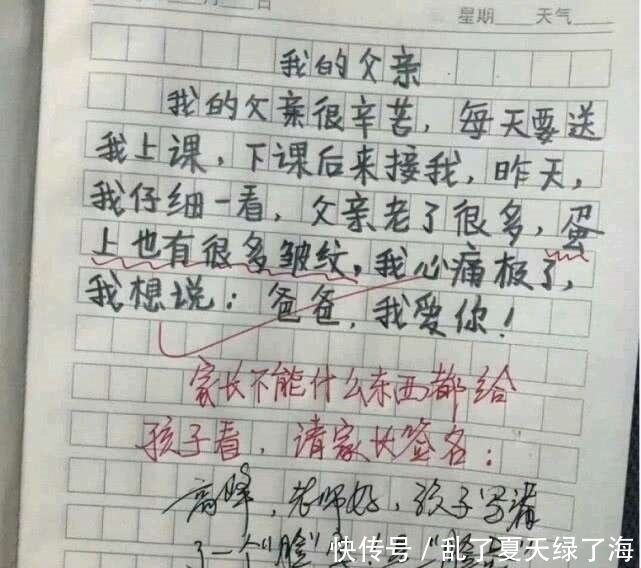 日
星期 天气
我的父亲
我的父亲很辛苦，每天要送
我上课，下课后来接我，昨天，
我仔细一看，父亲老了很多，蛋
上也有很多皱纹，我心痛极了，
我想说：爸爸，我爱你！
家长不能什么东西都给
孩子看，请家长签名：
高峰，老师好，孩子写漏
了一个“脸”
快传号／乱了夏天绿了海